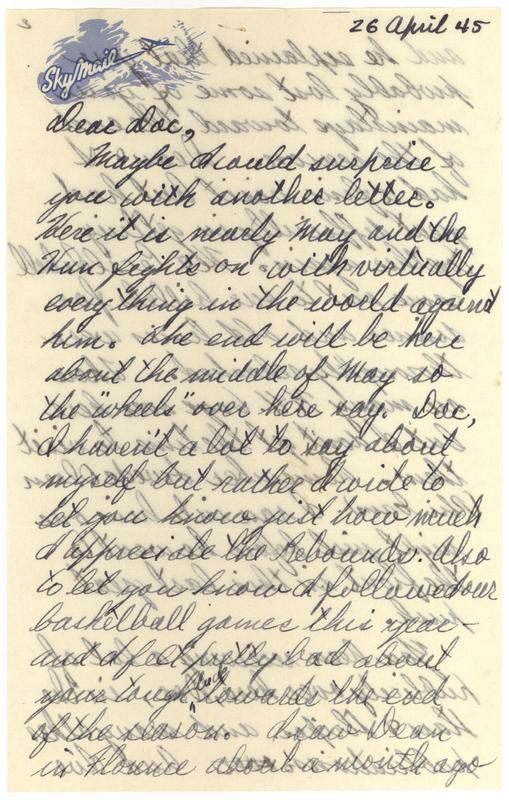 26 April 45
Sky Mail
Dear Doc,
Maybe I would surprise
you with another letter.
Here it is nearly May and the
Hun fights on with virtually
everything in the world against
him. The end will be here
about the middle of May so
the "wheels" over here say. Doc,
I haven't a lot to say about
myself but rather I write to
let you know just how much
I appreciate the Rebounds. Also
to let you know I followed our
basketball games this year-
and I felt pretty bad about
your tough luck towards the end
of the season. I saw Dean
in Florence about a month ago